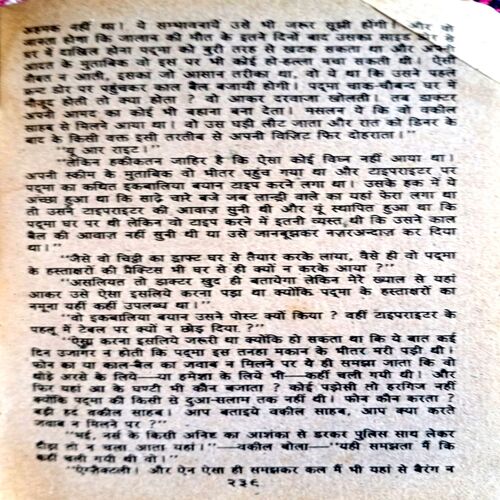 अहमक नहीं था। ये सम्भावनायें उसे भी जरूर सूझी होंगी। और वो
जानता होगा कि जालान की मौत के इतने दिनों बाद उसका साइड डोर से
घर में दाखिल होना पद्मा को बुरी तरह से खटक सकता था और अपनी
आदत के मुताबिक वो इस पर भी कोई हो-हल्ला मचा सकती थी। ऐसी
नौबत न आती, इसका जो आसान तरीका था, वो ये था कि उसने पहले
फ्रन्ट डोर पर पहुंचकर काल बैल बजायी होगी। पद्मा चाक-चौबन्द घर में
मौजूद होती तो क्या होता ? वो आकर दरवाजा खोलती। तब डाक्टर
अपनी आमद का कोई भी बहाना बना देता। मसलन ये कि वो वकील
साहब से मिलने आया था। वो उस घड़ी लौट जाता और रात को डिनर के
बाद के किसी वक्त इसी तरतीब से अपनी विज़िट फिर दोहराता।''
''यू आर राइट।''
''लेकिन हकीकतन जाहिर है कि ऐसा कोई विघ्न नहीं आया था।
अपनी स्कीम के मुताबिक वो भीतर पहुंच गया था और टाइपराइटर पर
पद्मा का कथित इकबालिया बयान टाइप करने लगा था। उसके हक में ये
अच्छा हुआ था कि साढ़े चारे बजे जब लान्ड्री वाले का यहां फेरा लगा था
तो उसने टाइपराइटर की आवाज़ सुनी थी और यूं स्थापित हुआ था कि
पद्मा घर पर थी लेकिन वो टाइप करने में इतनी व्यस्त थी कि उसने काल
बैल की आवाज़ नहीं सुनी थी या उसे जानबूझकर नज़रअन्दाज़ कर दिया
था।''
''जैसे वो चिट्ठी का ड्राफ्ट घर से तैयार करके लाया, वैसे ही वो पद्मा
के हस्ताक्षरों की प्रैक्टिस भी घर से ही क्यों न करके आया ?''
''असलियत तो डाक्टर खुद ही बतायेगा लेकिन मेरे ख्याल से यहां
आकर उसे ऐसा इसलिये करना पड़ा था क्योंकि पद्मा के हस्ताक्षरों का
नमूना यहीं कहीं उपलब्ध था।''
''वो इकबालिया बयान उसने पोस्ट क्यों किया ? वहीं टाइपराइटर के
पहलू में टेबल पर क्यों न छोड़ दिया ?''
''ऐसा करना इसलिये जरूरी था क्योंकि हो सकता था कि ये बात कई
दिन उजागर न होती कि पद्मा इस तनहा मकान के भीतर मरी पड़ी थी।
फोन का या काल-बैल का जवाब न मिलने पर ये ही समझा जाता कि वो
थोड़े अरसे के लिये—या हमेशा के लिये भी—कहीं चली गयी थी। और
फिर यहां आ के घण्टी भी कौन बजाता ? कोई पड़ोसी तो हरगिज नहीं
क्योंकि पद्मा की किसी से दुआ-सलाम तक नहीं थी। फोन कौन करता ?
बड़ी हद वकील साहब। आप बताइये वकील साहब, आप क्या करते
जवाब न मिलने पर ?''
''भई, नर्स के किसी अनिष्ट का आशंका से डरकर पुलिस साथ लेकर
दौड़ा तो न चला आता यहां।''—वकील बोला—''यही समझता मैं कि
कहीं चली गयी थी वो।''
''ऐग्जैक्टली। और ऐन ऐसा ही समझकर कल मैं भी यहां से बैरंग न
२३६